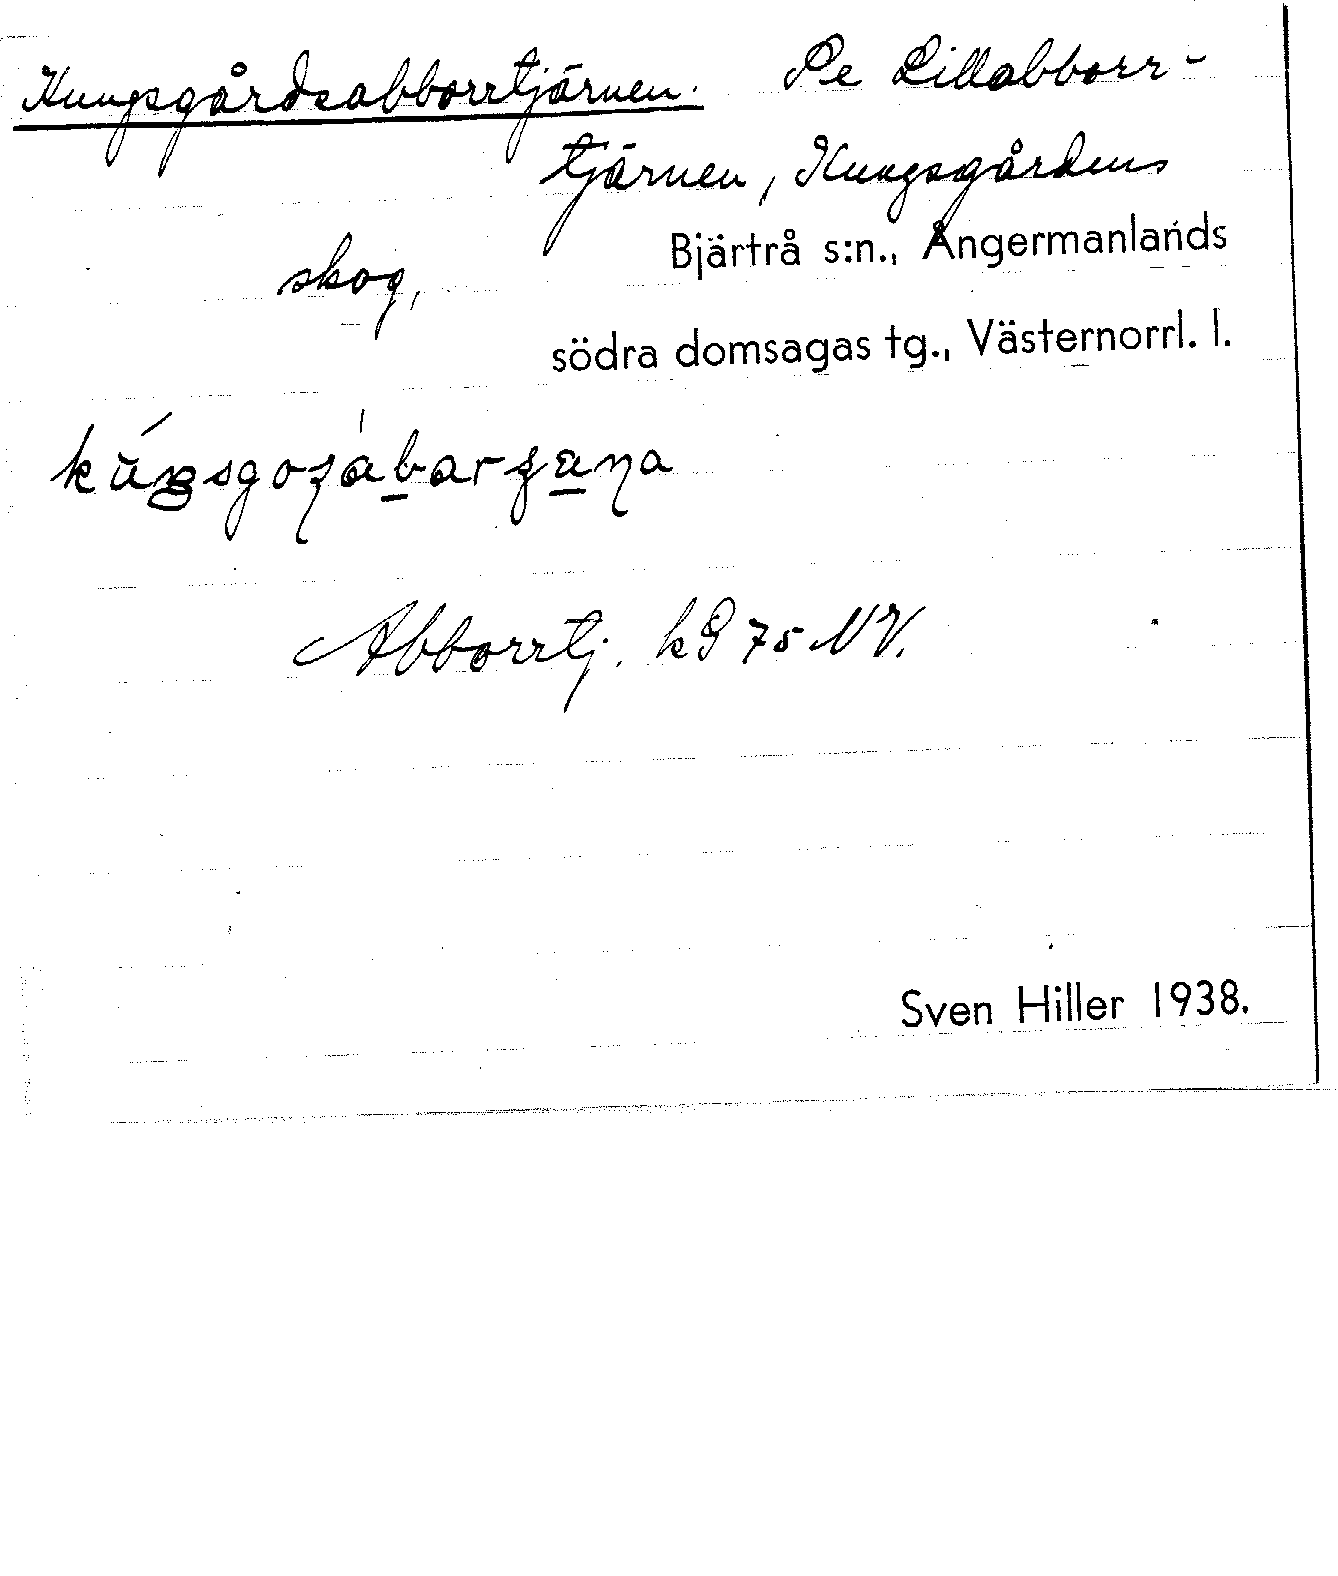 Kungsgårdsabborrtjärnen. Se Lillabborr-
tjärnen, Kungsgårdens
skog,
Bjärtrå s:n., Ångermanlands
södra domsagas tg., Västernorrl. l.
Abborrtj. kG 75 NV.
Sven Hiller 1938.